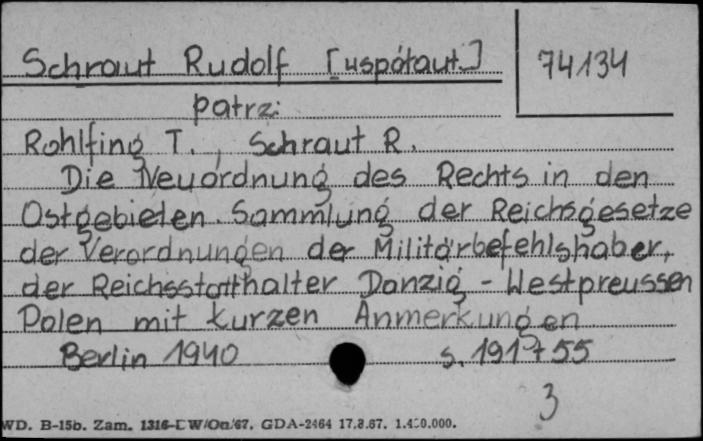 Schraut Rudolf [uspótaut.]
74134
patrz:
Rohlfing T., Schraut R.
Die Neuordnung des Rechts in den
Ostgebieten. Sammlung der Reichsgesetze
der Verordnungen der Militärbefehlshaber,
der Reichsstatthalter Danzig - Westpreussen
Polen mit kurzen Anmerkungen
Berlin 1940 s. 191+55
3
WD. B-15b. Zam. 1316-LW/Oa/67. GDA-2464 17.8.67. 1.400.000.